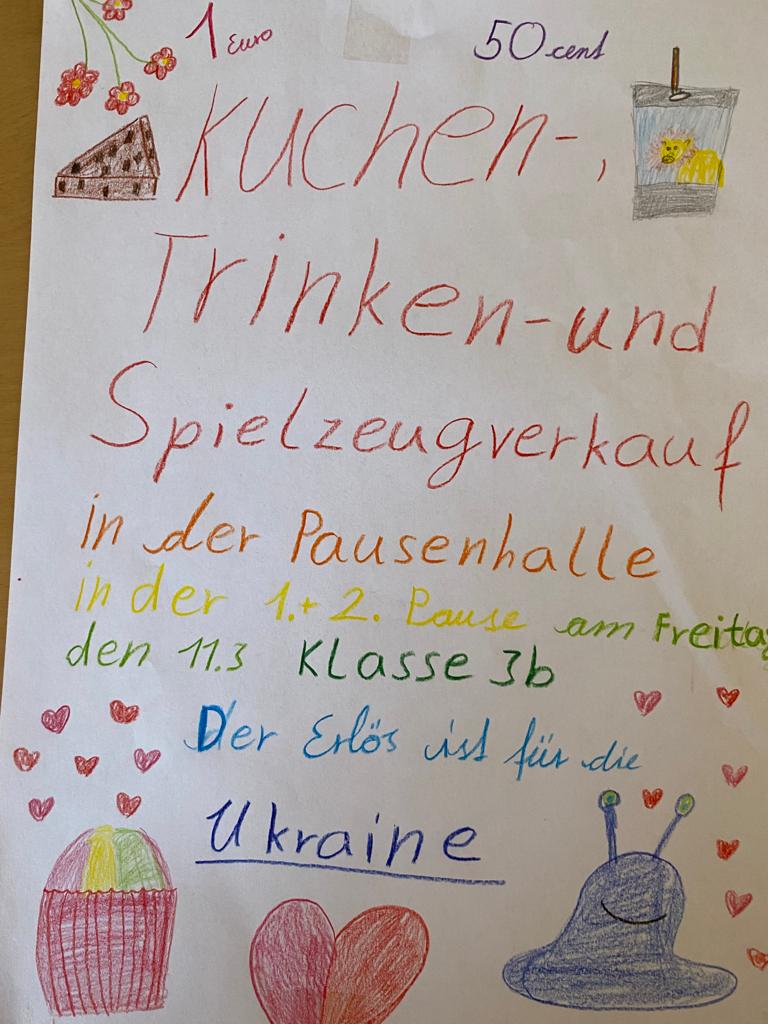 1 Euro 50 cent
Kuchen-,
Trinken- und
Spielzeugverkauf
in der Pausenhalle
in der 1. + 2. Pause am Freitag
den 11.3 Klasse 3b
Der Erlös ist für die
Ukraine